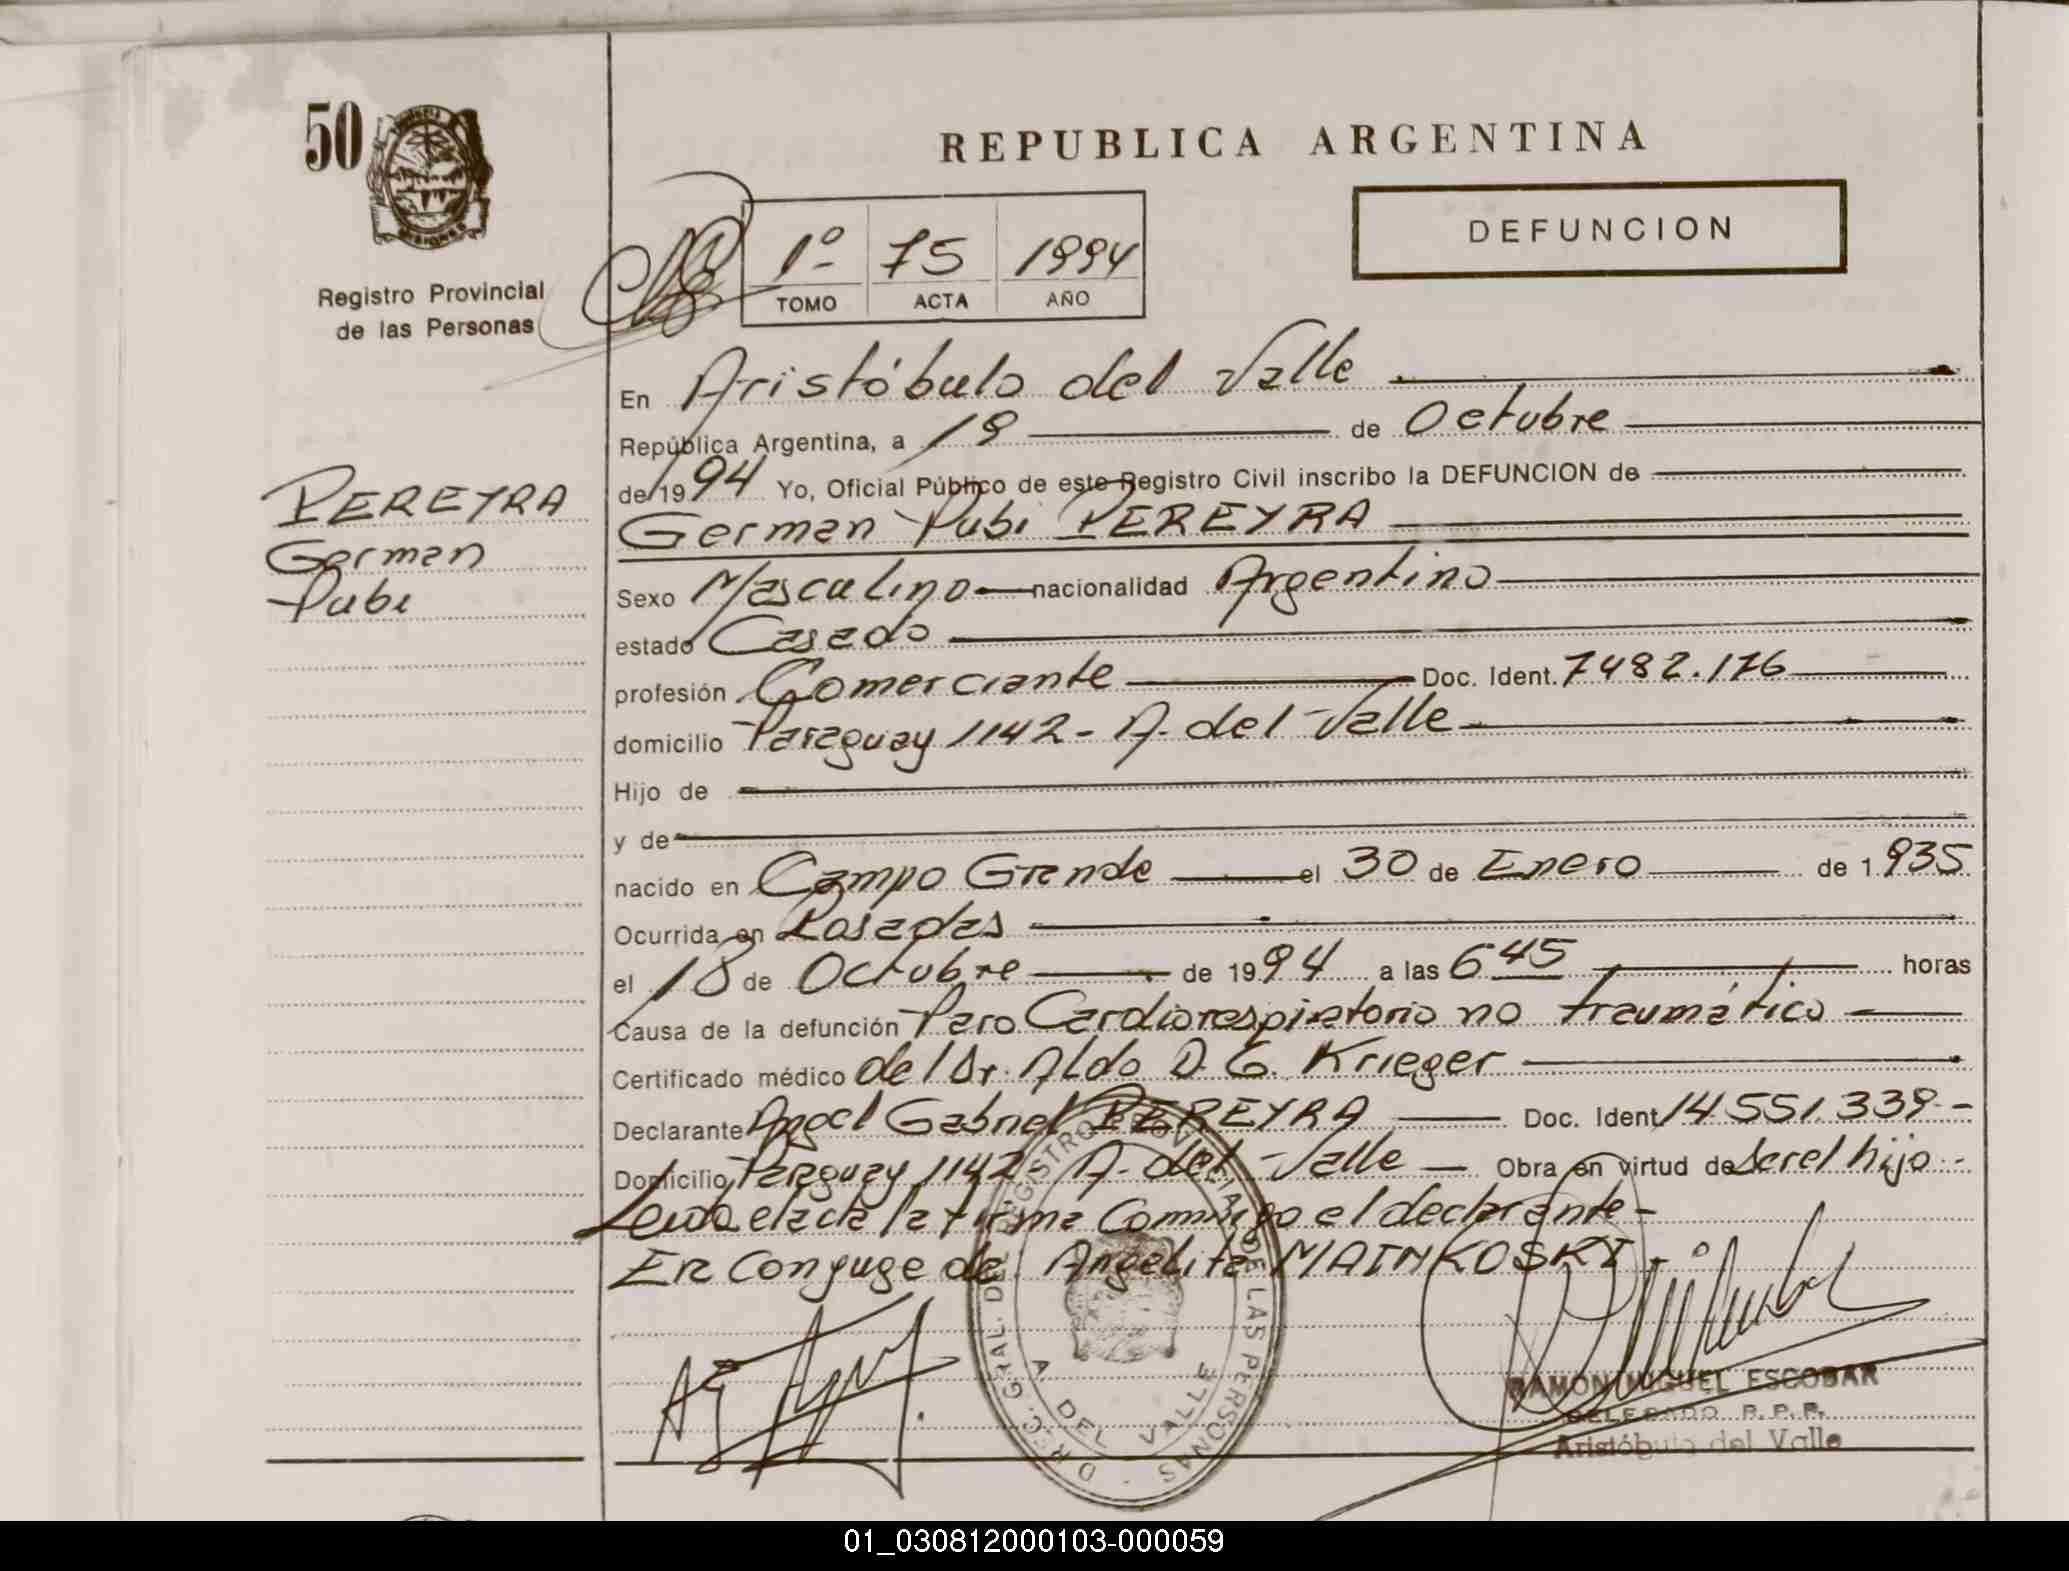 50
MISIONES
Registro Provincial
de las Personas
REPUBLICA ARGENTINA
DEFUNCION
1º 75 1994
TOMO ACTA AÑO
PEREYRA
German
Pubi
En Aristóbulo del Valle
República Argentina, a 19 de Octubre
de 1994 Yo, Oficial Público de este Registro Civil inscribo la DEFUNCION de
German Pubi PEREYRA
Sexo Masculino nacionalidad Argentino
estado Casado
profesión Comerciante Doc. Ident. 7482.176
domicilio Paraguay 1142- A. del Valle
Hijo de
y de
nacido en Campo Grande el 30 de Enero de 1.935
Ocurrida en Posadas
el 18 de Octubre de 1994 a las 6 45 horas
Causa de la defunción Paro Cardiorespiratorio no traumático
Certificado médico del Dr. Aldo D. G. Krieger
Declarante Angel Gabriel PEREYRA Doc. Ident. 14.551.339-
Domicilio Paraguay 1142- A. del Valle Obra en virtud de ser el hijo-
Leida el acta la firma Conmigo el declarante-
Era Conyuge de Angelita MAINKOSKI-
DIREC. GRAL. DEL REGISTRO PROVINCIAL DE LAS PERSONAS
A. DEL VALLE
RAMON MIGUEL ESCOBAR
DELEGADO R.P.P.
Aristóbulo del Valle
01_030812000103-000059